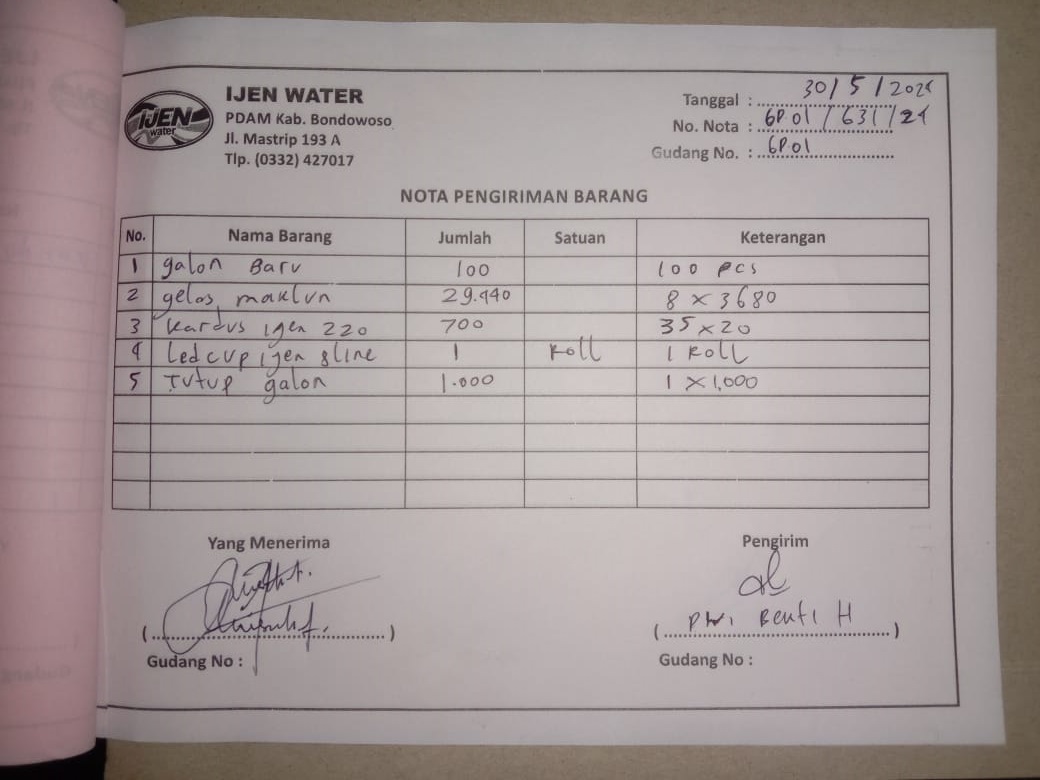 IJEN water
IJEN WATER
PDAM Kab. Bondowoso
Jl. Mastrip 193 A
Tlp. (0332) 427017
Tanggal : 30/5/2024
No. Nota : GP.01/631/24
Gudang No. : GP.01
NOTA PENGIRIMAN BARANG
No. Nama Barang Jumlah Satuan Keterangan
1 galon Baru 100 100 PCS
2 gelas maklun 29.440 8 x 3680
3 kardus ijen 220 700 35 x 20
4 Ledcup ijen 8line 1 Roll 1 Roll
5 Tutup galon 1.000 1 x 1,000
Yang Menerima Pengirim
(..........) (Beuti H)
Gudang No : Gudang No :